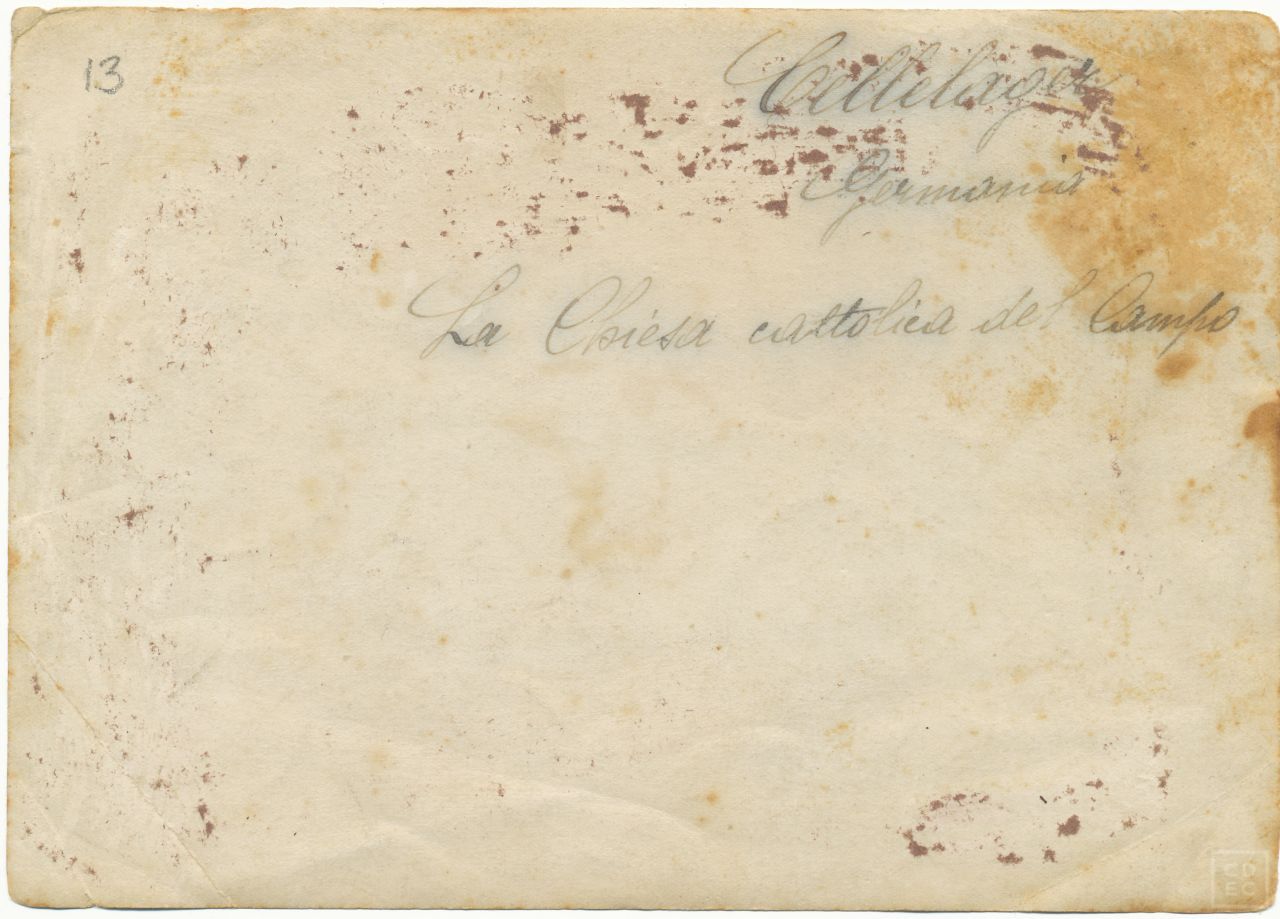 13
Cellelager
Germania
La Chiesa cattolica del Campo
CD
EC